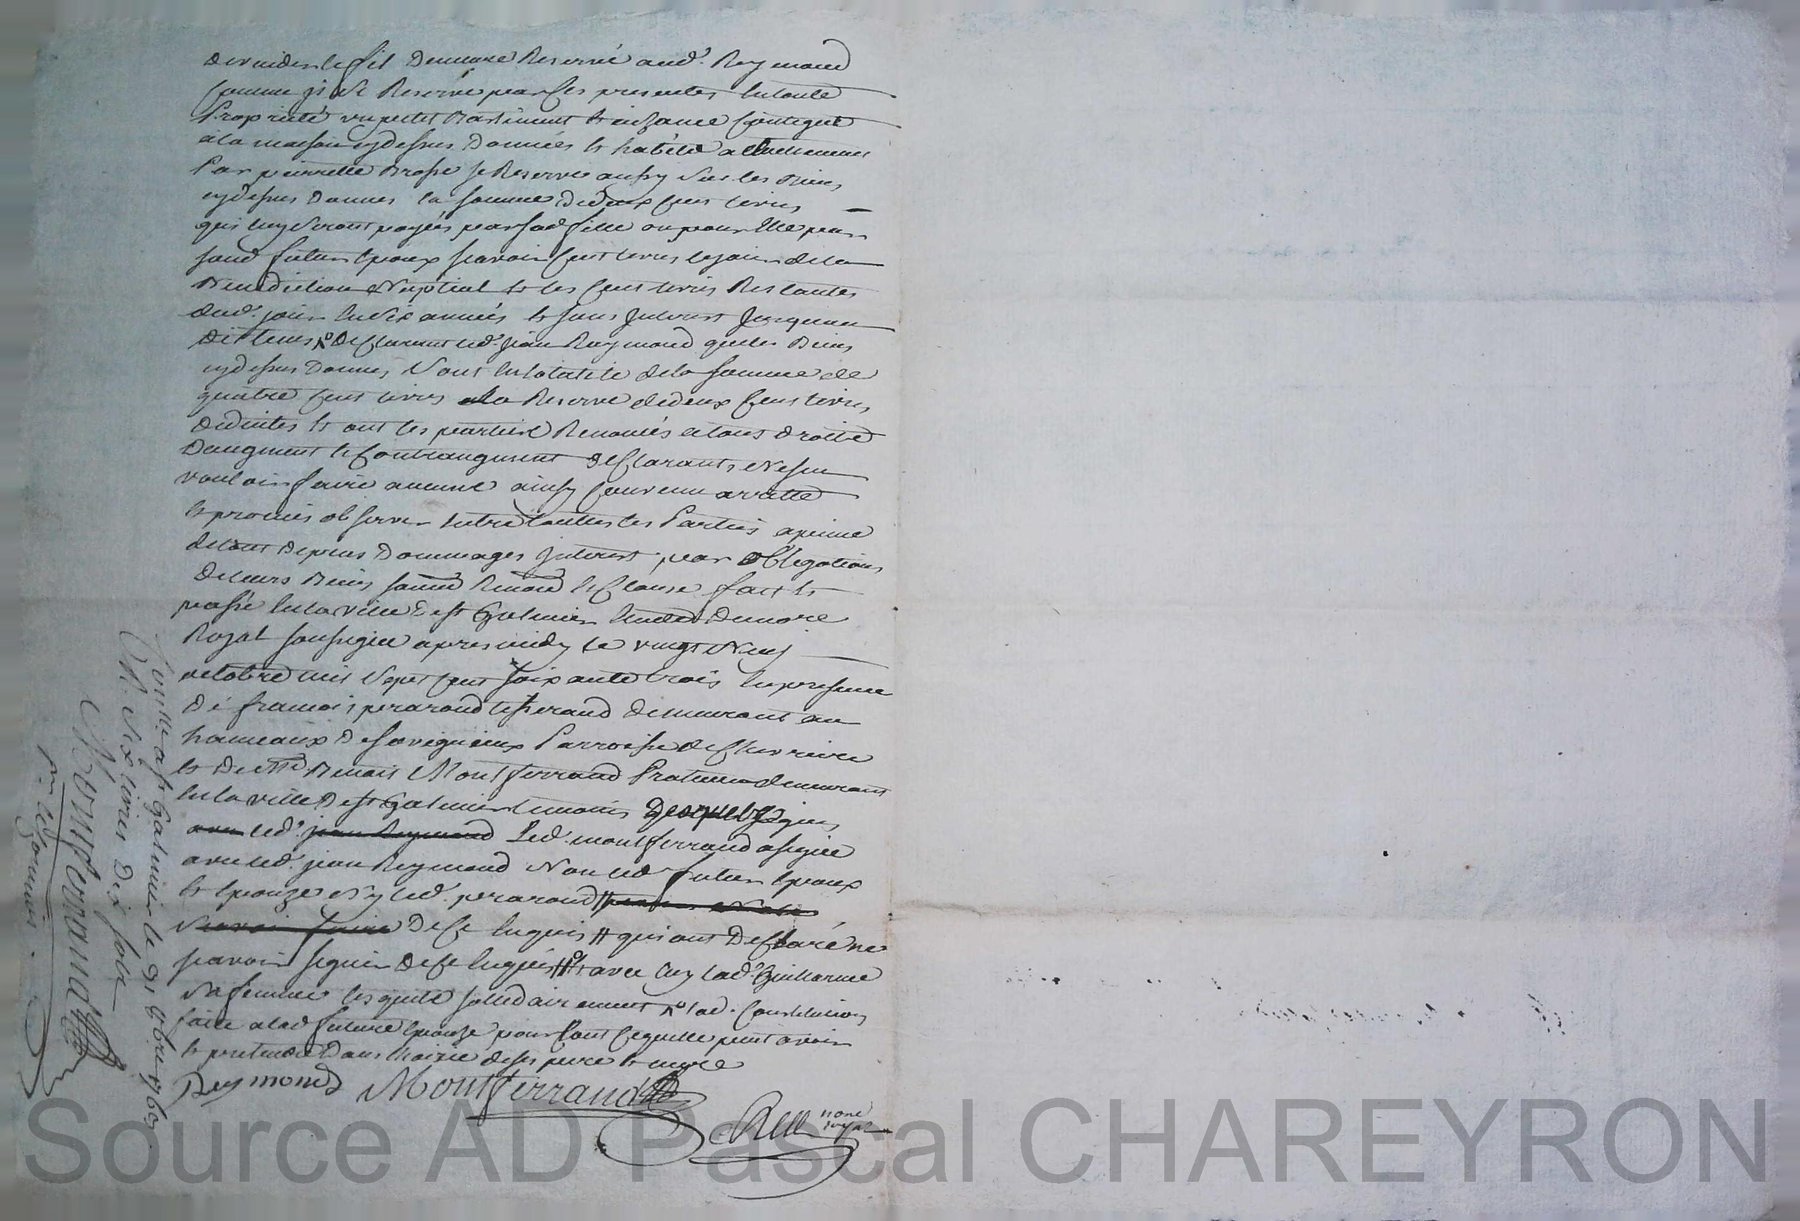 devuider le fil demeure Reservé aud. Reymond
Comme jl se Reserve par Ces presentes en toute
Propriété un petit Bastiment et aizance Contigue
a la maison cydessus donnée et habité actuellement
Par pierrette Brosse se Reserve aussy sur les Biens
cydessus donnés la somme de deux Cent livres
qui luy seront payés par sad. fille ou pour Elle par
sond. futur Epoux scavoir Cent livres le jour de la
Benediction Nuptial et les Cent livres Restantes
dud. jour en six années et sans jnterest jusques au
dit tems declarant led. jean Reymond que les Biens
cydessus donnés sont en totalité de la somme de
quatre Cent livres la Reserve de deux Cens livres
deduittes et ont les parties Renoncés a tous droits
daugment et Contraugment declarants ne
vouloir faire aucune ainsy Convenu arretté
et promis observer entre touttes les Parties a peine
de tous depens dommages jnterest par obligations
de leurs Biens soumis Renoncé et Clause fait et
passé en la ville de st Galmier Etude du nore
Royal soussigné apres midy le vingt Neuf
octobre mil sept cent soixante trois en presence
de francois perarond tisserand demeurant au
hameaux de savigneux Parroisse de Chevriere
et de Me Benoit Montferrand Praticien demeurant
en la ville de st Galmier temoins
avec led. jean Reymond Led. montferrand a signé
avec led. jean Reymond Non led. futur Epoux
et Epouze N'y led. perarond
scavoir faire de ce Enquis # qui ont declaré ne
scavoir signer de ce Enquis # avec luy lad. Guillarme
sa femme lesquels sollidairement lad. Constitution
faite a lad. future Epouze pour tout ce quelle peut avoir
et pretendre dans l'hoirie de ses pere et mere
Reymond Montferrand
nore
royal
Conllé a st Galmier le 9bre 1763
R. six livres dix sols
Montferrand
pr le Commis
Source AD Pascal CHAREYRON